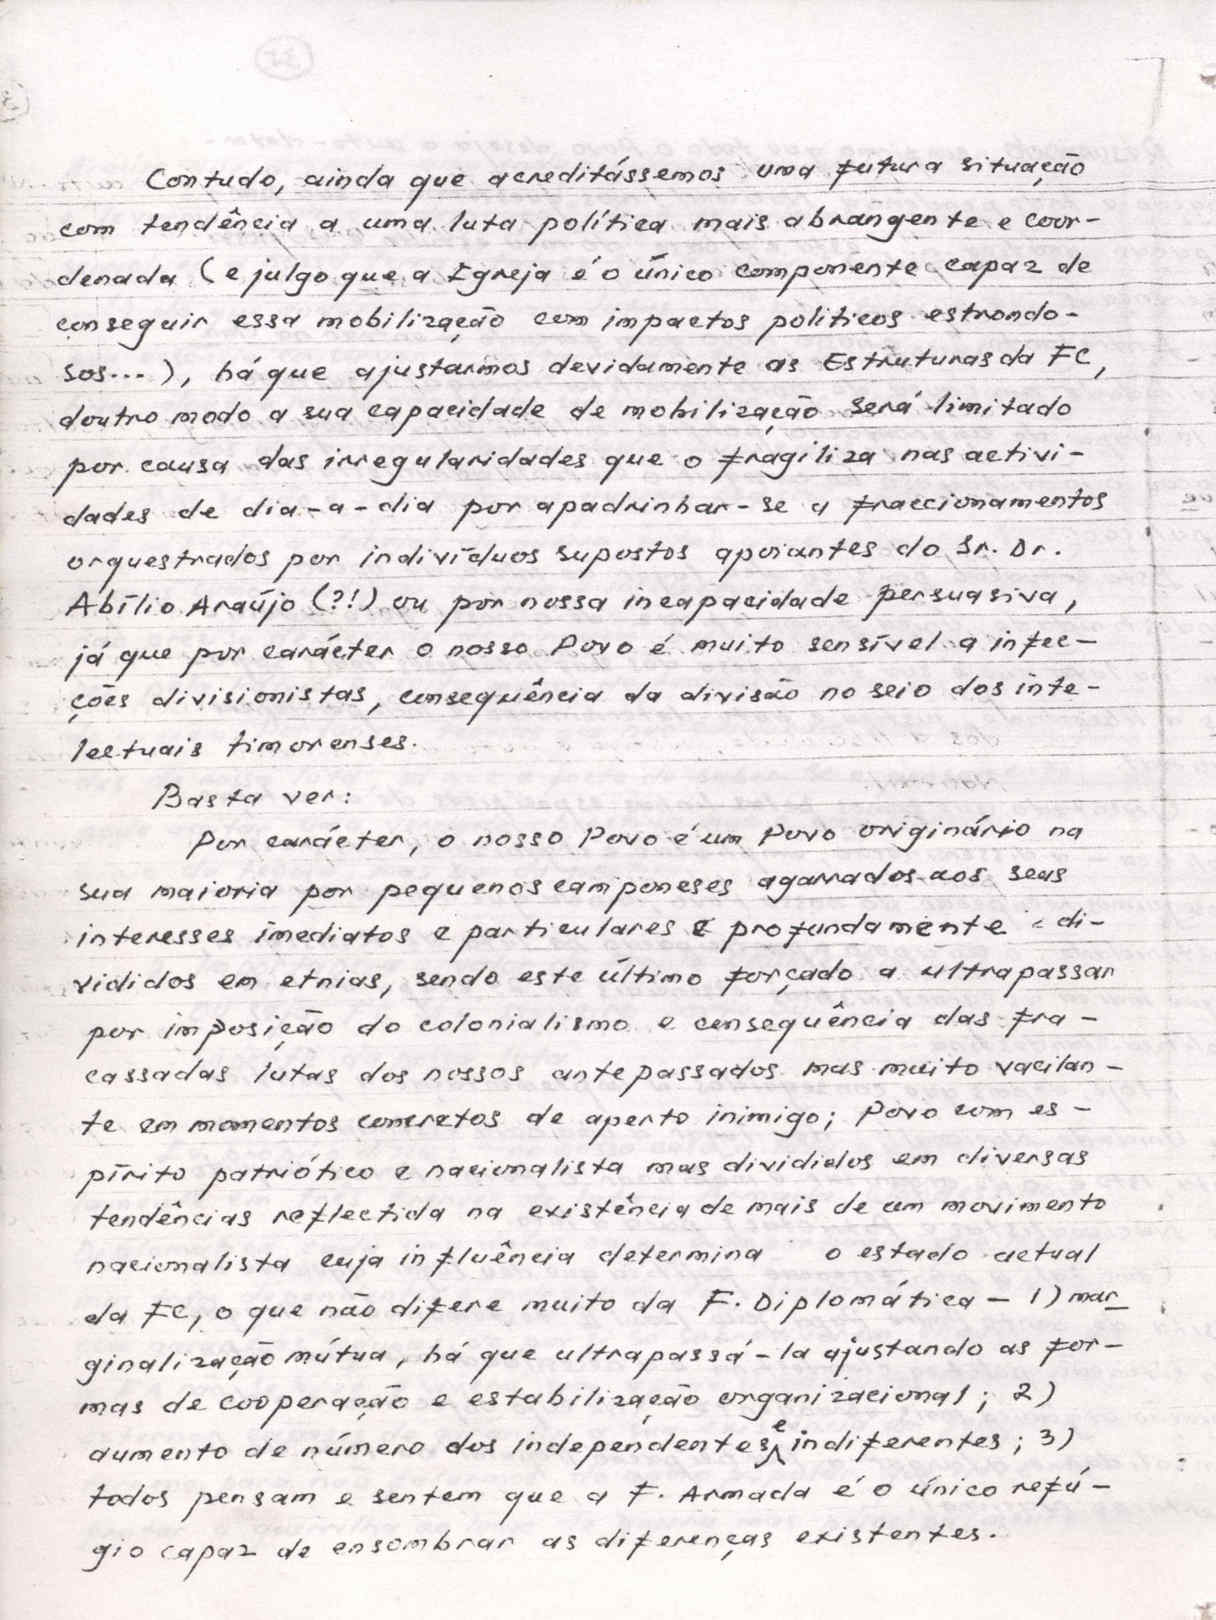 Contudo, ainda que acreditássemos uma futura situação
com tendência a uma luta política mais abrangente e coor-
denada (e julgo que a Igreja é o único componente capaz de
conseguir essa mobilização com impactos politicos estrondo-
sos...), há que ajustarmos devidamente as Estruturas da FC,
doutro modo a sua capacidade de mobilização será limitado
por causa das irregularidades que o fragiliza nas activi-
dades de dia-a-dia por apadrinhar-se a fraccionamentos
orquestrados por indivíduos supostos apoiantes do Sr. Dr.
Abílio Araújo (?!) ou por nossa incapacidade persuasiva,
já que por carácter o nosso Povo é muito sensível a infec-
ções divisionistas, consequência da divisão no seio dos inte-
lectuais timorenses.
Basta ver:
Por carácter, o nosso Povo é um Povo originário na
sua maioria por pequenos camponeses agarrados aos seus
interesses imediatos e particulares e profundamente di-
vididos em etnias, sendo este último forçado a ultrapassar
por imposição do colonialismo e consequência das fra-
cassadas lutas dos nossos antepassados mas muito vacilan-
te em momentos concretos de aperto inimigo; Povo com es-
pírito patriótico e nacionalista mas divididos em diversas
tendências reflectida na existência de mais de um movimento
nacionalista cuja influência determina o estado actual
da FC, o que não difere muito da F. Diplomática - 1) mar
ginalização mútua, há que ultrapassá-la ajustando as for-
mas de cooperação e estabilização organizacional; 2)
aumento de número dos independentes e indiferentes; 3)
todos pensam e sentem que a F. Armada é o único refú-
gio capaz de ensombrar as diferenças existentes.